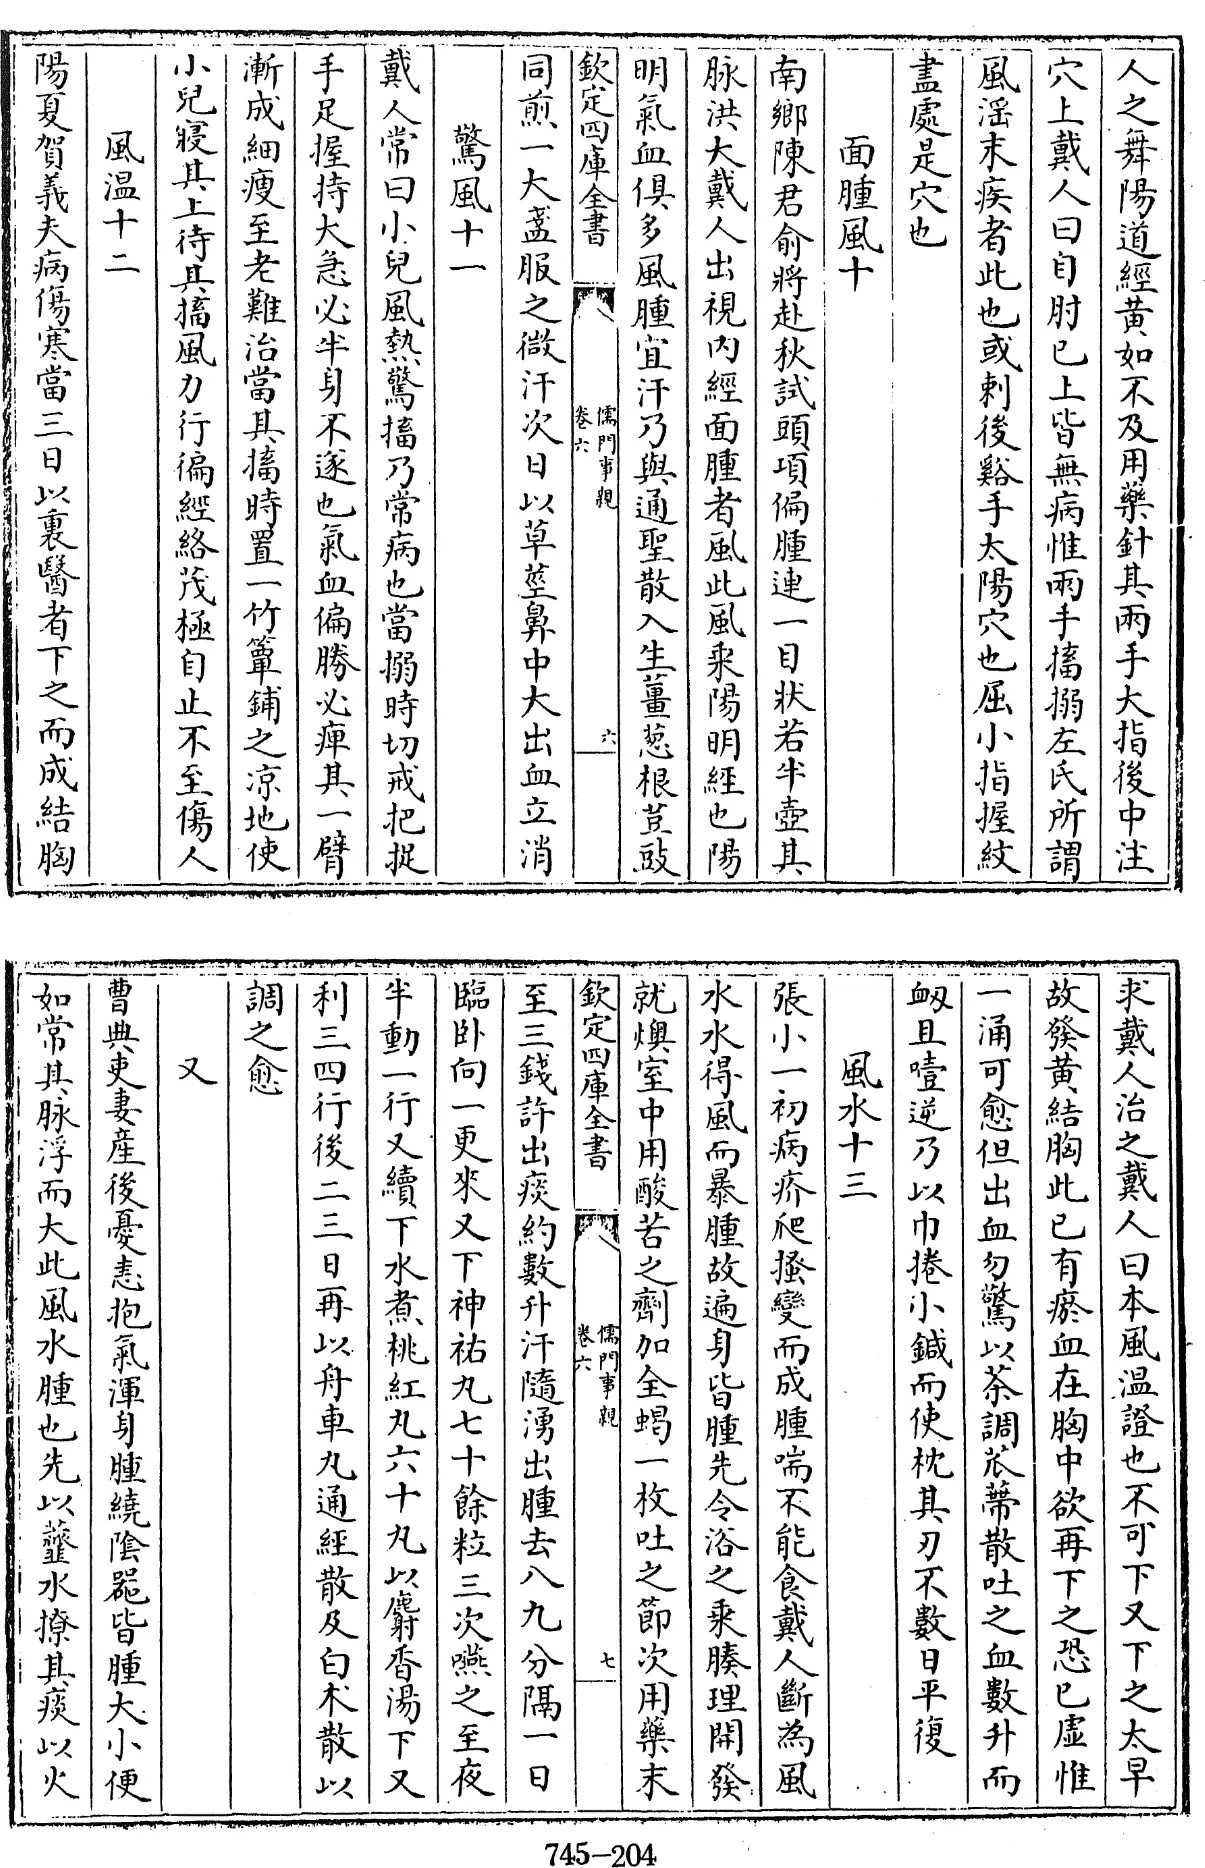 人之舞陽道經黄如不及用藥針其兩手大指後中注
穴上戴人曰自肘已上皆無病惟兩手搐搦左氏所謂
風淫末疾者此也或刺後谿手太陽穴也屈小指握紋
盡處是穴也
面腫風十
南鄉陳君俞將赴秋試頭項偏腫連一目狀若半壺其
脉洪大戴人出視内經面腫者風此風乘陽明經也陽
明氣血俱多風腫宜汗乃與通聖散入生薑葱根荳豉
欽定四庫全書
儒門事親
卷六
六
同煎一大盞服之微汗次日以草莖鼻中大出血立消
驚風十一
戴人常曰小兒風熱驚搐乃常病也當搦時切戒把捉
手足握持太急必半身不遂也氣血偏勝必痺其一臂
漸成細瘦至老難治當其搐時置一竹簟鋪之凉地使
小兒寢其上待其搐風力行徧經絡茂極自止不至傷人
風温十二
陽夏賀義夫病傷寒當三日以裏醫者下之而成結胸
求戴人治之戴人曰本風温證也不可下又下之太早
故發黄結胸此已有瘀血在胸中欲再下之恐已虚惟
一涌可愈但出血勿驚以茶調瓜蔕散吐之血數升而
衂且噎逆乃以巾捲小鍼而使枕其刃不數日平復
風水十三
張小一初病疥爬搔變而成腫喘不能食戴人斷為風
水水得風而暴腫故遍身皆腫先令浴之乘腠理開發
就燠室中用酸苦之劑加全蝎一枚吐之節次用藥末
欽定四庫全書
儒門事親
卷六
七
至三錢許出痰約數升汗隨湧出腫去八九分隔一日
臨卧向一更來又下神祐丸七十餘粒三次嚥之至夜
半動一行又續下水煮桃紅丸六十丸以麝香湯下又
利三四行後二三日再以舟車丸通經散及白术散以
調之愈
又
曹典吏妻産後憂恚抱氣渾身腫繞陰器皆腫大小便
如常其脉浮而大此風水腫也先以虀水撩其痰以火
745-204